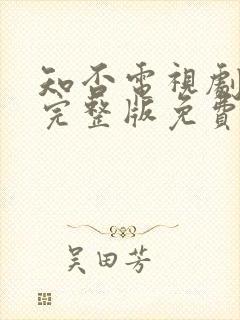 知否電視劇
完整版免費
吴田芳